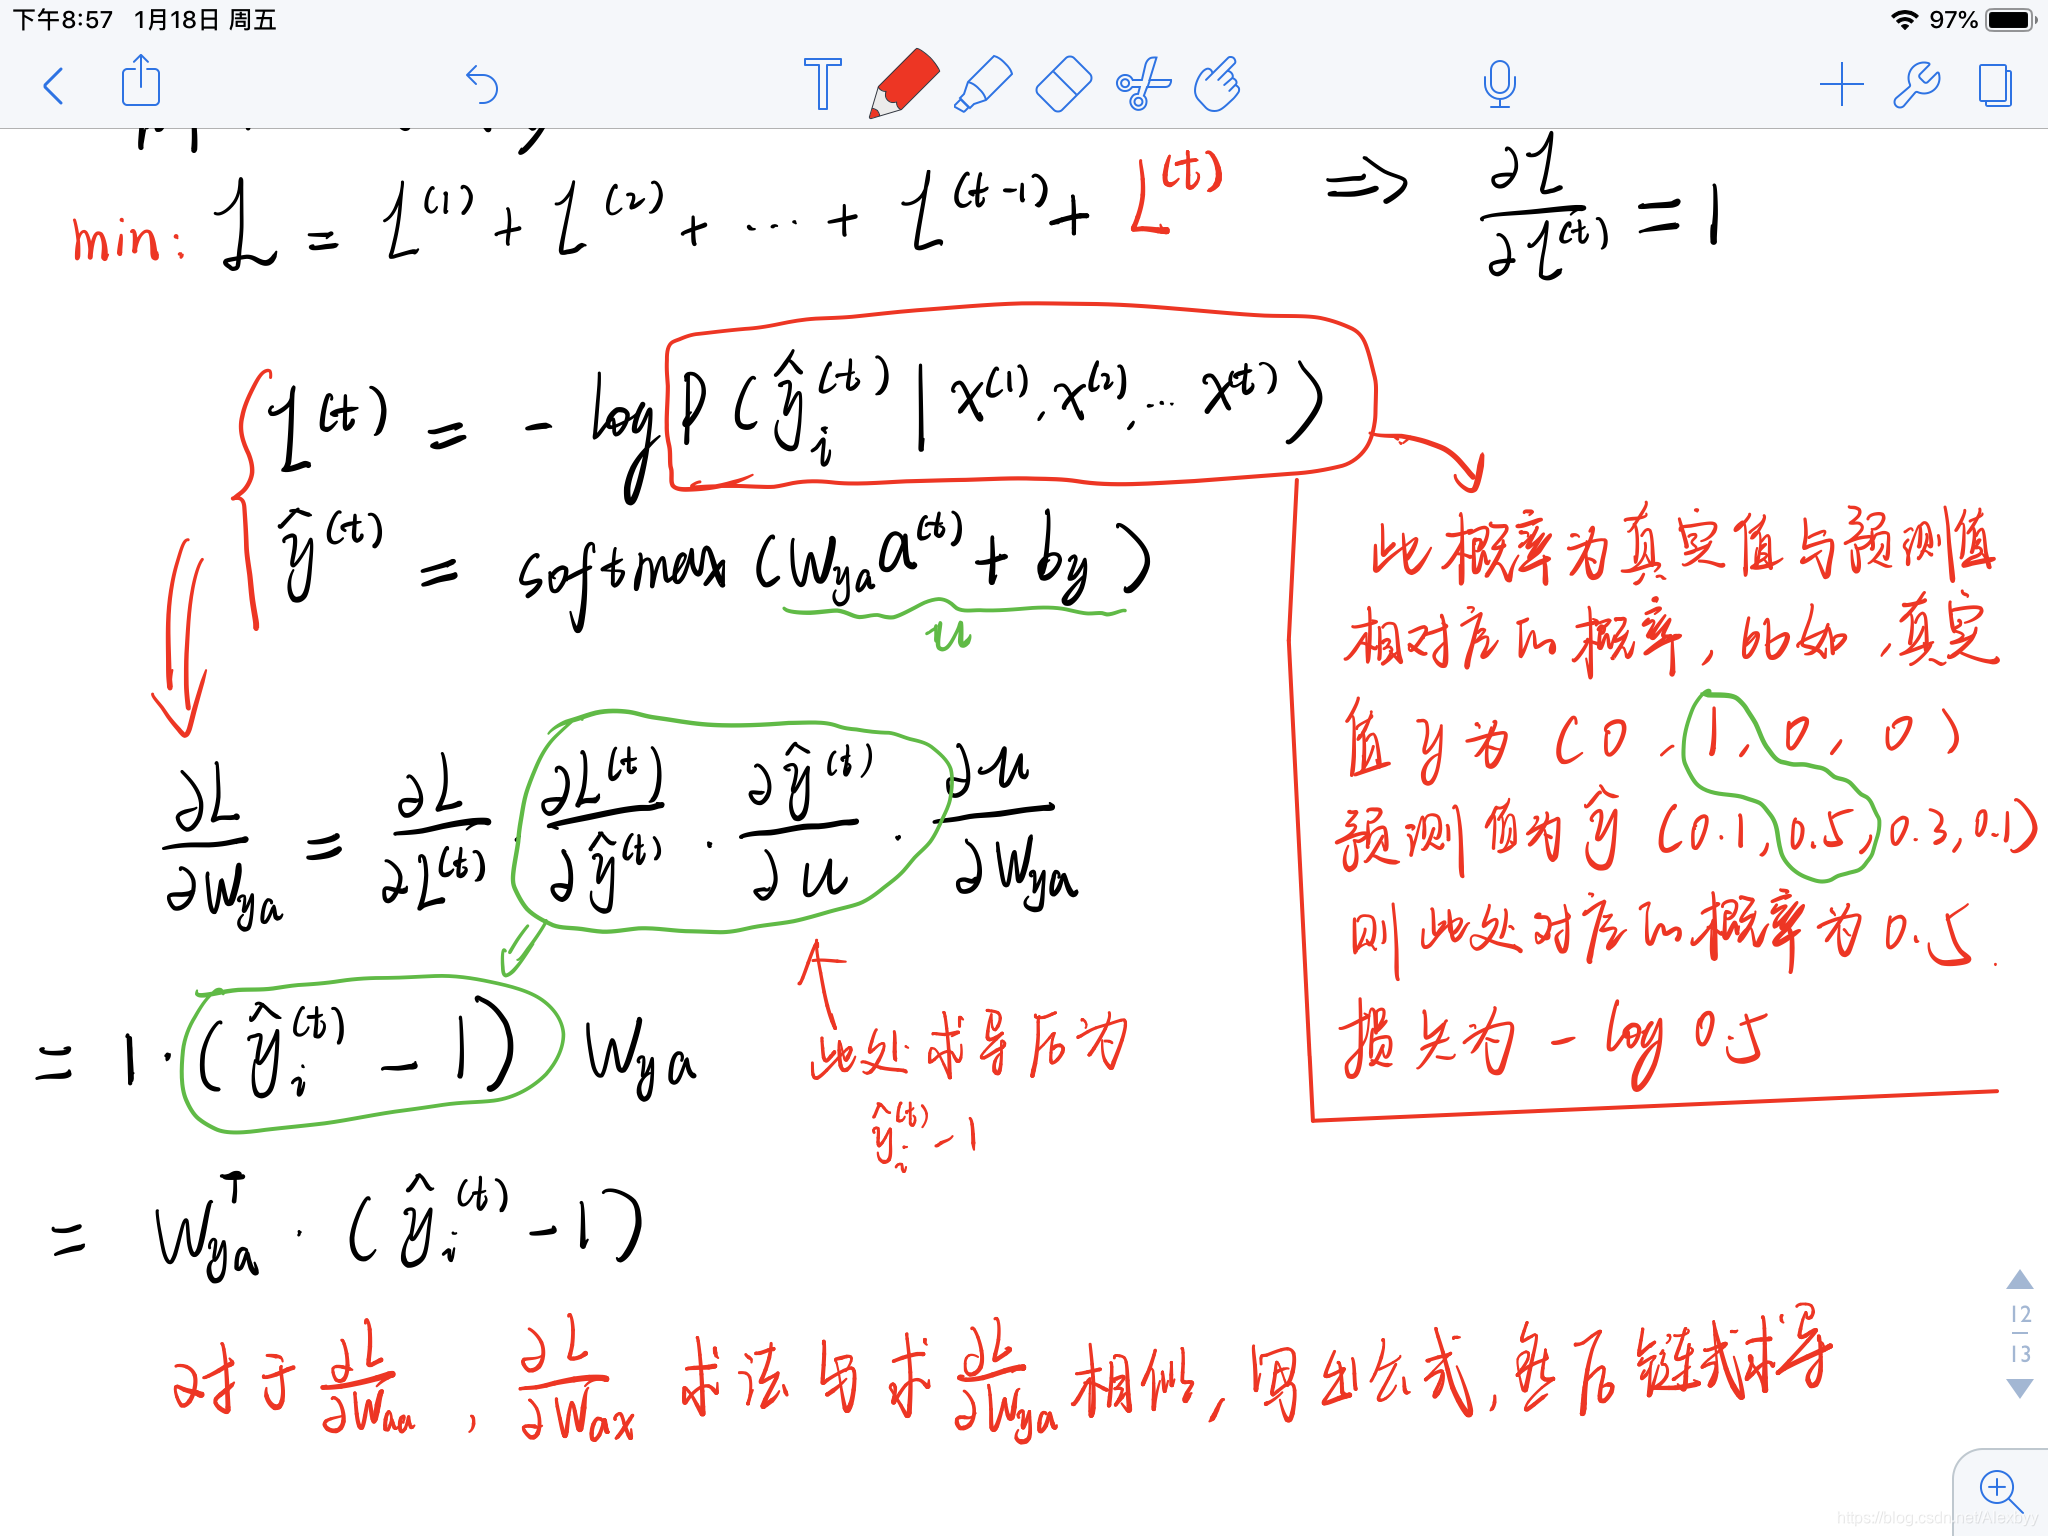 下午8:57 1月18日 周五 97%
min: L = L^(1) + L^(2) + ... + L^(t-1) + L^(t) => ∂L/∂L^(t) = 1
L^(t) = - log P(ŷ_i^(t) | x^(1), x^(2), ... x^(t))
ŷ^(t) = softmax (W_ya a^(t) + b_y)
u
此概率为真实值与预测值
相对应的概率, 比如, 真实
值 y 为 (0, 1, 0, 0)
预测值为 ŷ (0.1, 0.5, 0.3, 0.1)
则此处对应的概率为 0.5.
损失为 - log 0.5
∂L/∂W_ya = ∂L/∂L^(t) · ∂L^(t)/∂ŷ^(t) · ∂ŷ^(t)/∂u · ∂u/∂W_ya
= 1 · (ŷ_i^(t) - 1) W_ya
此处求导后为
ŷ_i^(t) - 1
= W_ya^T · (ŷ_i^(t) - 1)
对于 ∂L/∂W_aa, ∂L/∂W_ax 求法与求 ∂L/∂W_ya 相似, 写出公式, 然后链式求导
12
13
https://blog.csdn.net/Alexbyy